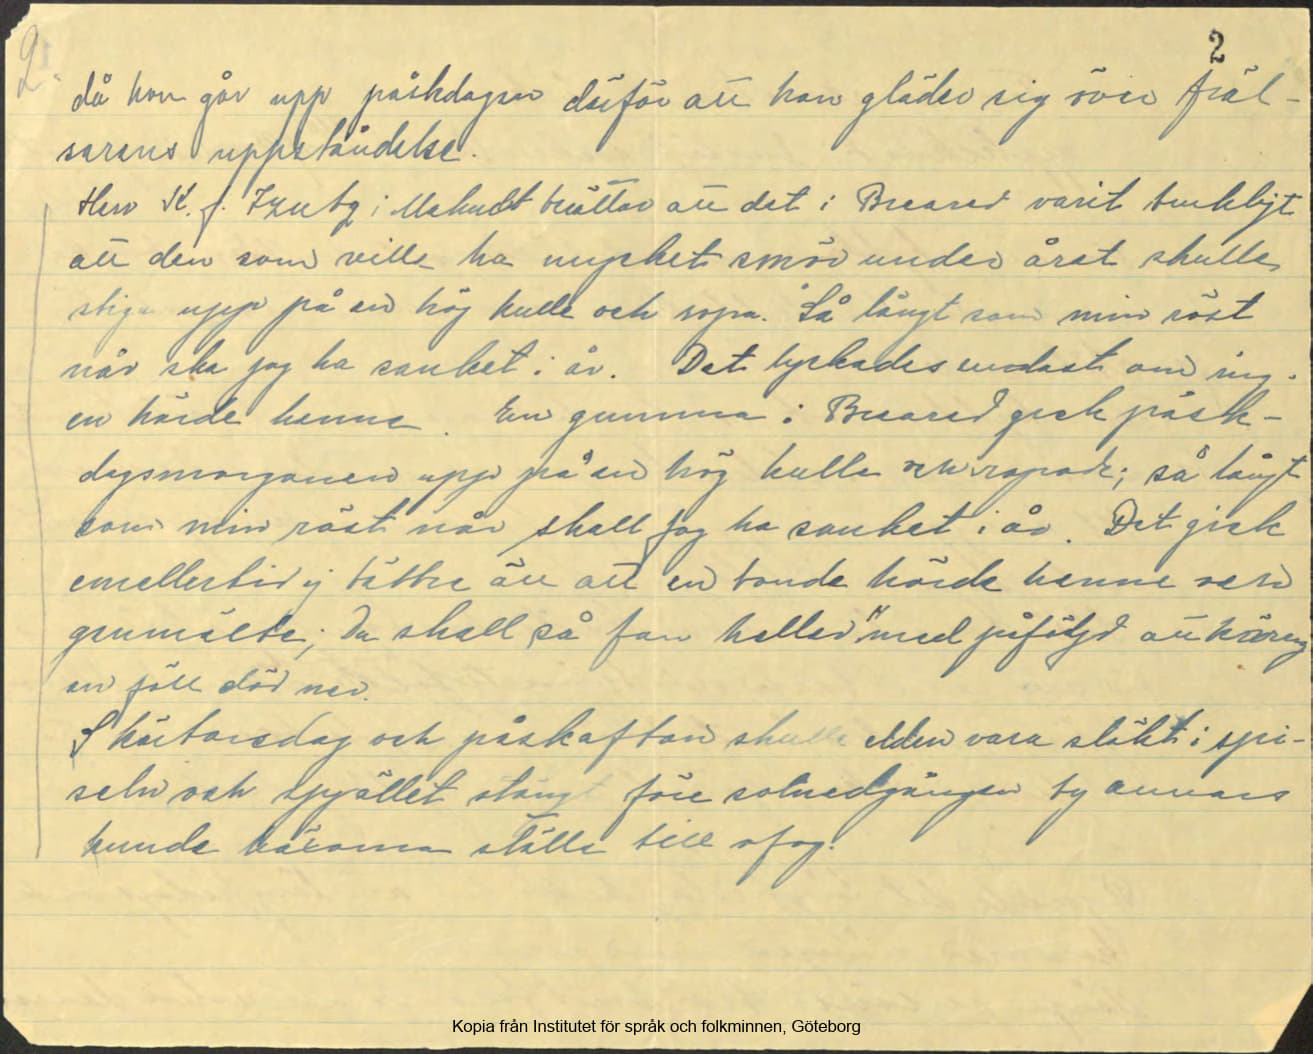 2.
2
då hon går upp påskdagen därför att hon gläder sig över fräl-
sarens uppståndelse.
Herr K. J. i berättar att det i Breared varit brukligt
att den som ville ha mycket smör under året skulle
stiga upp på en hög kulle och ropa. Så långt som min röst
når ska jag ha sanket i år. Det lyckades endast om ing-
en hörde henne. En gumma i Breared gick påsk-
dagsmorgonen upp på en hög kulle och ropade; så långt
som min röst når skall jag ha sanket i år. Det gick
emellertid ej bättre än att en bonde hörde henne och
genmälte; Du skall så fan heller" med påföljd att käring
en föll död ner.
Skärtorsdag och påskafton skulle elden vara släkt i spi-
seln och spjället stängt före solnedgången ty annars
kunde käroma ställa till ofog.
Kopia från Institutet för språk och folkminnen, Göteborg